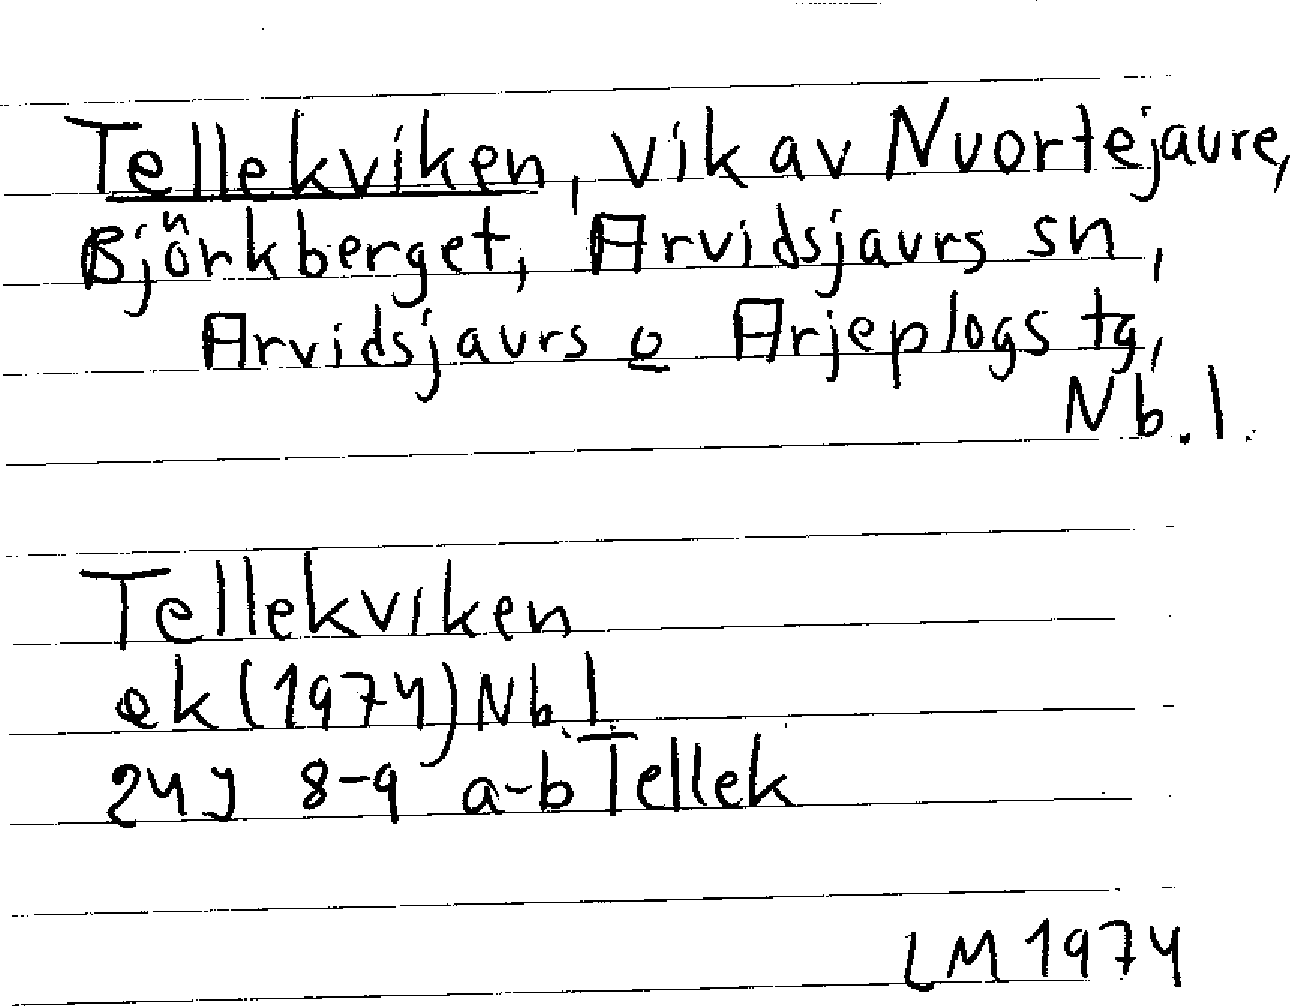 Tellekviken, vik av Nuortejaure,
Björkberget, Arvidsjaurs sn,
Arvidsjaurs o Arjeplogs tg,
Nb. l.
Tellekviken
ek (1974) Nb. l.
24J 8-9 a-b Tellek
LM 1974